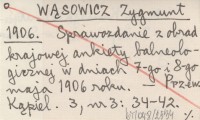 WĄSOWICZ Zygmunt
1906. Sprawozdanie z obrad
krajowej ankiety balneolo-
gicznej w dniach 7-go i 8-go
maja 1906 roku. — Przew.
Kąpiel. 3, nr 3: 34-42.